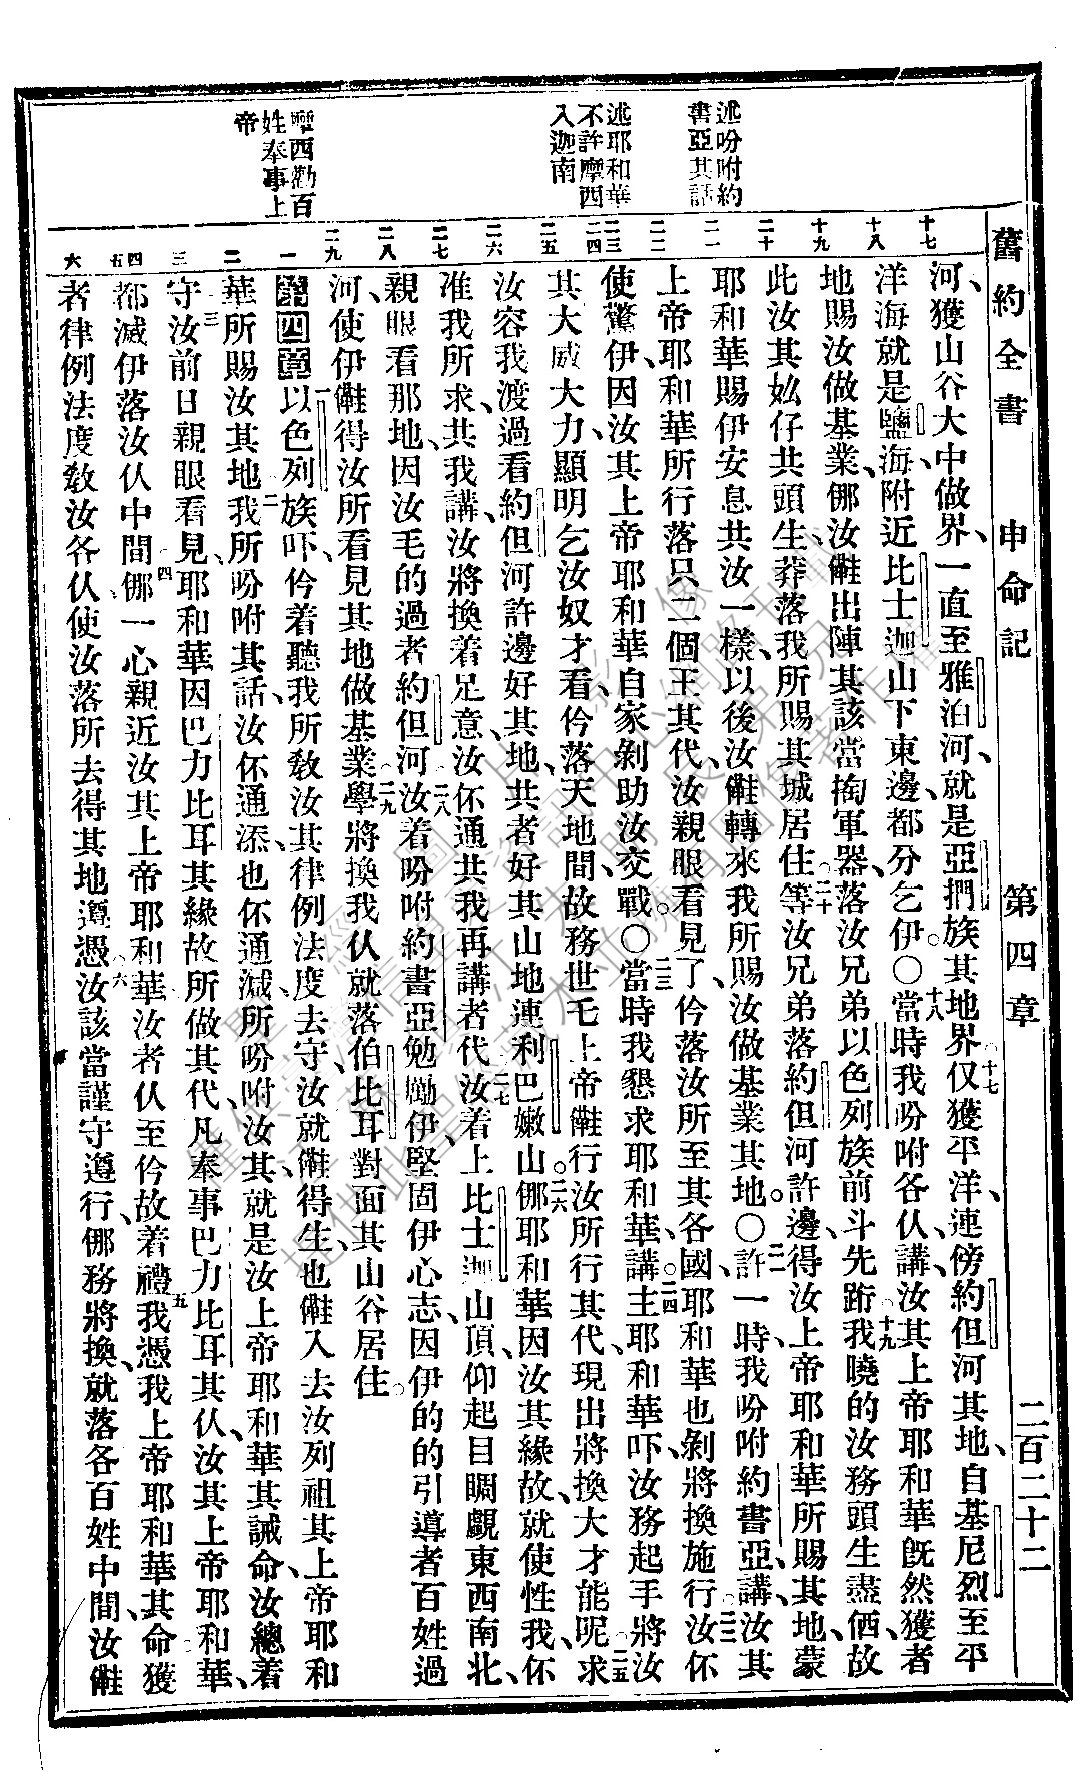 舊約全書　申命記　第四章　二百二十二
述吩咐約
書亞其話
述耶和華
不許摩西
入迦南
摩西勸百
姓奉事上
帝
十七
十八
十九
二十
二一
二二
二三
二四
二五
二六
二七
二八
二九
一
二
三
四
五
六
河、獲山谷大中做界、一直至雅泊河、就是亞捫族其地界。十七仅獲平洋、連傍約但河其地、自基尼烈至平
洋海就是鹽海、附近比士迦山下東邊、都分乞伊。〇十八當時我吩咐各仈講、汝其上帝耶和華旣然獲者
地賜汝做基業、㑚汝𠆧出陣其該當掏軍器、落汝兄弟以色列族前斗先跨。十九我曉的汝務頭生盡価、故
此汝其妣仔共頭生、莽落我所賜其城居住、二十等汝兄弟落約但河許邊、得汝上帝耶和華所賜其地、蒙
耶和華賜伊安息共汝一樣、以後汝𠆧轉來我所賜汝做基業其地。〇二一許一時我吩咐約書亞講、汝其
上帝耶和華所行落只二個王其代、汝親眼看見了、仱落汝所至其各國、耶和華也剝將換施行。二二汝伓
使驚伊、因汝其上帝耶和華自家剝助汝交戰。〇二三當時我懇求耶和華講、二四主耶和華吓、汝務起手將汝
其大威大力、顯明乞汝奴才看、仱落天地間、故務世乇上帝𠆧行汝所行其代、現出將換大才能呢、二五求
汝容我渡過看約但河許邊好其地、共者好其山地連利巴嫩山。二六㑚耶和華因汝其緣故、就使性我、伓
准我所求、共我講、汝將換着足意、汝伓通共我再講者代、二七汝着上比士迦山頂、仰起目睭覷東西南北、
親眼看那地、因汝乇的過者約但河、二八汝着吩咐約書亞、勉勵伊堅固伊心志、因伊的的引導者百姓過
河、使伊𠆧得汝所看見其地做基業。二九學將換我仈就落伯比耳對面其山谷居住。
第四章 一以色列族吓、仱着聽我所敎汝其律例法度去守、汝就𠆧得生、也𠆧入去汝列祖其上帝耶和
華所賜汝其地。二我所吩咐其話、汝伓通添、也伓通減、所吩咐汝其、就是汝上帝耶和華其誡命、汝總着
守。三汝前日親眼看見、耶和華因巴力比耳其緣故所做其代、凡奉事巴力比耳其仈、汝其上帝耶和華、
都滅伊落汝仈中間、四㑚一心親近汝其上帝耶和華汝者仈、至仱故着禮。五我憑我上帝耶和華其命、獲
者律例法度敎汝各仈、使汝落所去得其地遵憑。六汝該當謹守遵行、㑚務將換、就落各百姓中間、汝𠆧